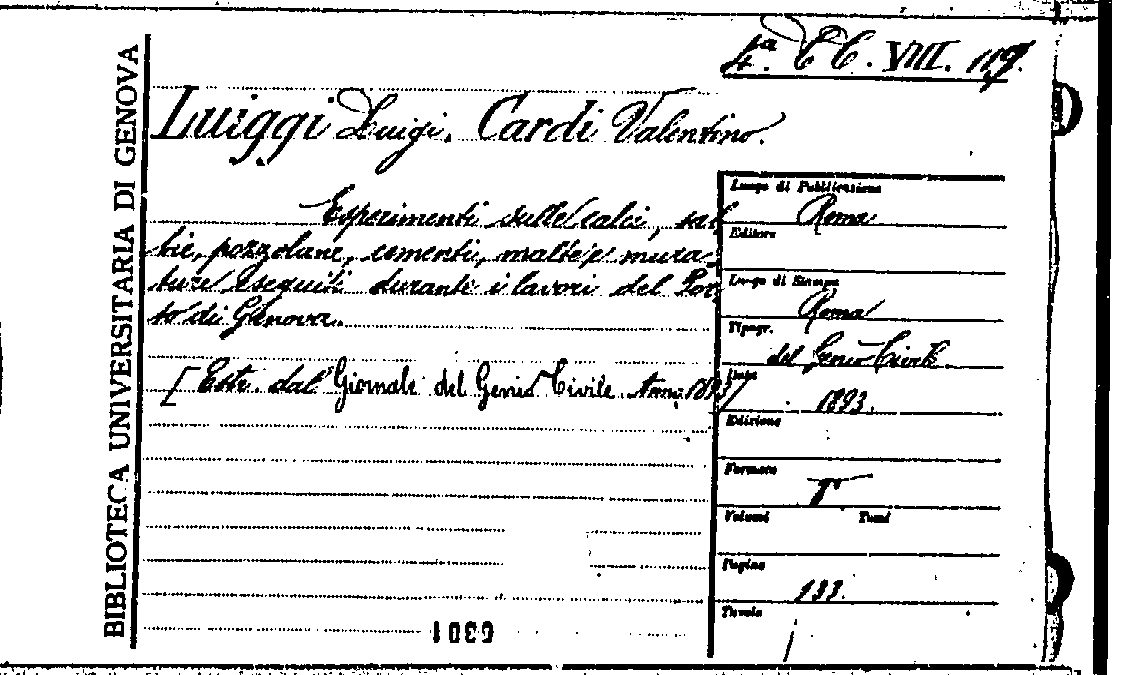 BIBLIOTECA UNIVERSITARIA DI GENOVA
4ª. CC. VIII. 119.
Luiggi Luigi. Cardi Valentino.
Esperimenti sulle calci, sab
bie, pozzolane, cementi, malte e mura
ture eseguiti durante i lavori del Por
to di Genova.
[Estr. dal Giornale del Genio Civile Anno 1893]
Luogo di Pubblicazione
Roma
Editore
Luogo di Stampa
Roma
Tipogr.
del Genio Civile
Data
1893.
Edizione
Formato
8°
Volumi Tomi
Pagine
133.
Tavole